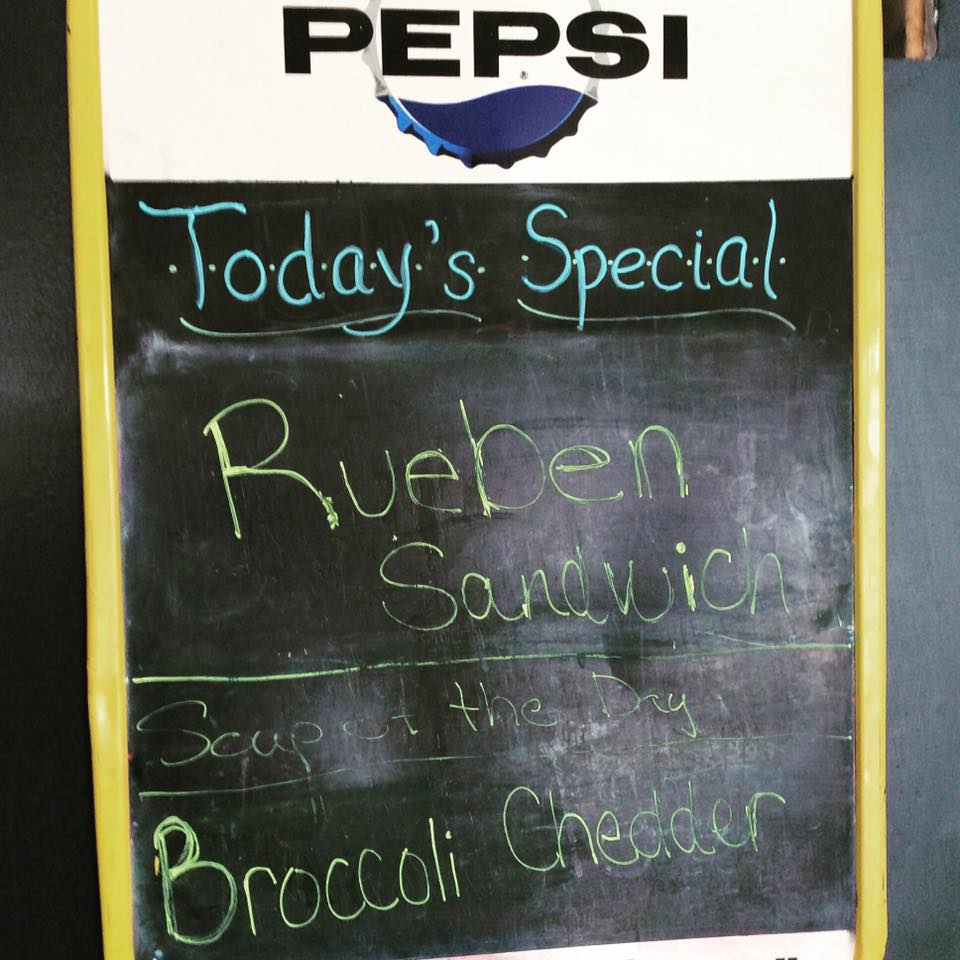 PEPSI
Today's Special
Rueben
Sandwich
Soup of the Day
Broccoli Chedder